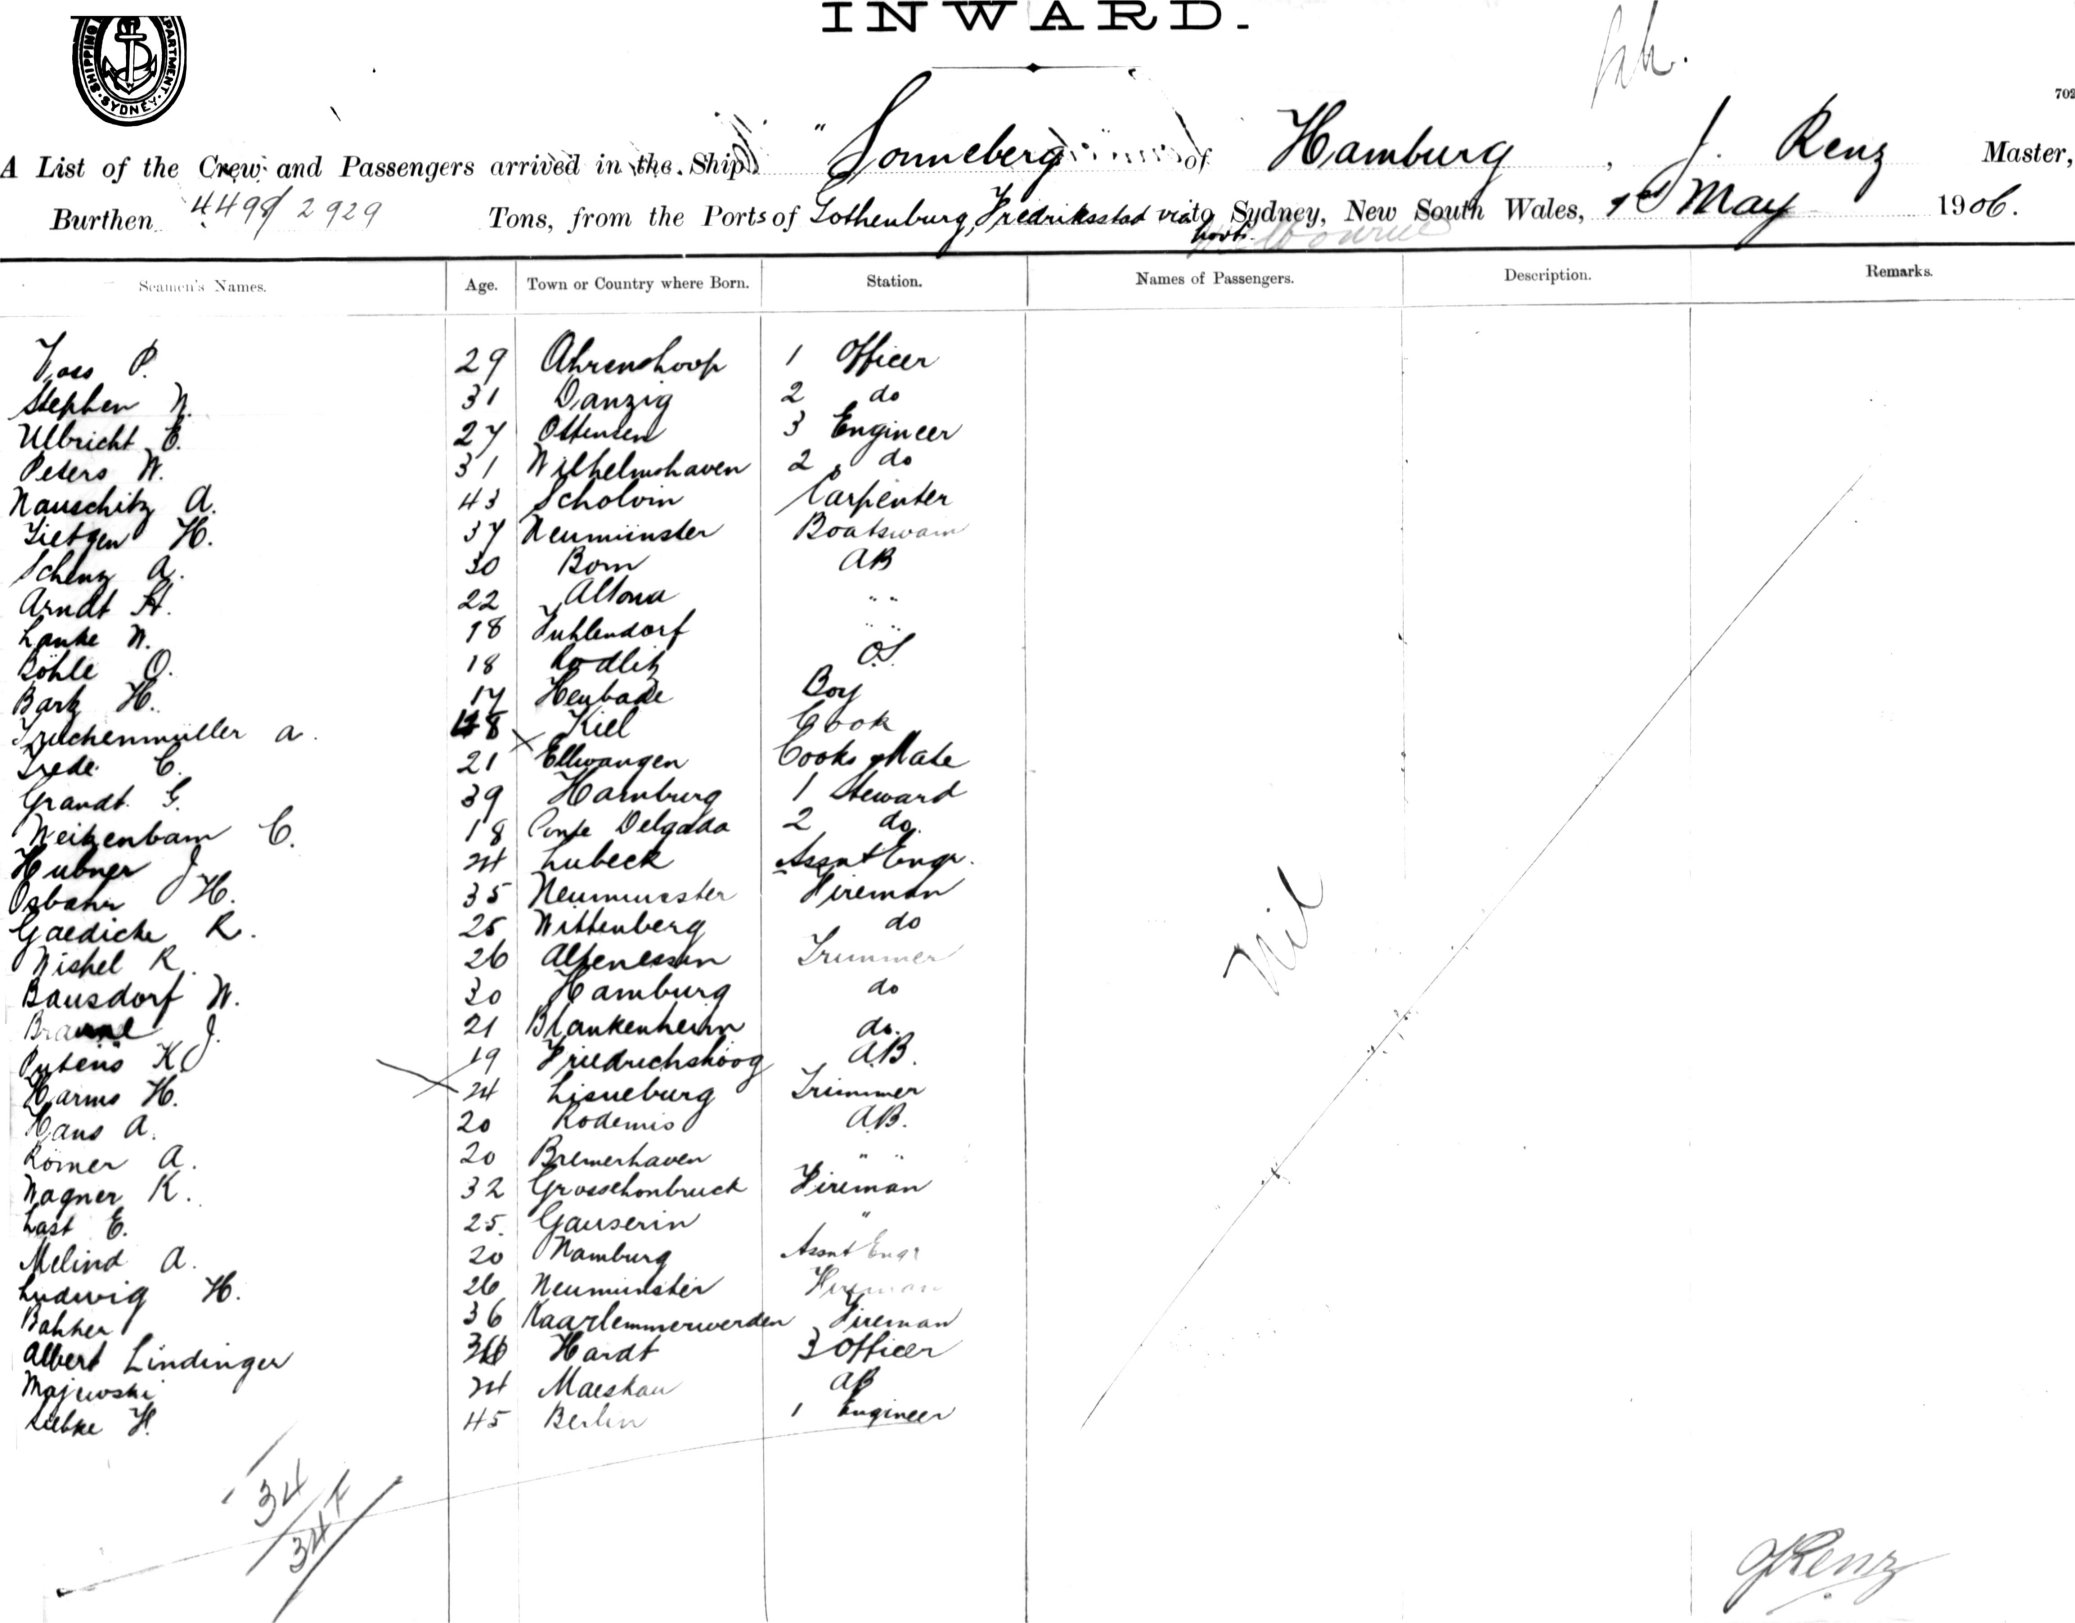 INWARD.
SHIPPING DEPARTMENT. SYDNEY.
702
A List of the Crew and Passengers arrived in the Ship "Sonneberg of Hamburg, J. Renz Master,
Burthen 4498/2929 Tons, from the Ports of Gothenburg, Fredriksstad via ports to Sydney, New South Wales, 1st May 1906.
Seamen's Names. Age. Town or Country where Born. Station. Names of Passengers. Description. Remarks.
Voss P. 29 Ahrenshoop 1 Officer
Stephen W. 31 Danzig 2 do
Ulbricht E. 27 Ottensen 3 Engineer
Peters W. 31 Wilhelmshaven 2 do
Nauschitz A. 43 Scholvin Carpenter
Tietgen H. 37 Neumünster Boatswain
Schenz A. 30 Born AB
Arndt H. 22 Altona " "
Lanke W. 18 Fuhlendorf " "
Böhle O. 18 Rodlitz O.S.
Bark H. 17 Heubade Boy
Truchenmüller A. 48 Kiel Cook
Trede C. 21 Ellwangen Cooks Mate
Grandt G. 39 Hamburg 1 Steward
Weitzenbam C. 18 Ponte Delgada 2 do.
Hubner J 24 Lubeck Assnt Engr.
Osbahr H. 35 Neumunster Fireman
Gaedicke R. 25 Wittenberg do
Nishel R. 26 Altenessen Trimmer
Bausdorf W. 30 Hamburg do
J. 21 Blankenheim do.
K. 19 Friedrichskoog A.B.
Harms H. 24 Lisneburg Trimmer
Hans A. 20 Rodemis A.B.
Römer A. 20 Bremerhaven " "
Wagner K. 32 Grosschonbruck Fireman
Last E. 25. Gauserin "
Melind A. 20 Hamburg Assnt Engr
Ludwig H. 26 Neumünster Fireman
Bakker 36 Kaarlemmerwerden Fireman
Albert Lindinger Hardt 3 Officer
Majewski 24 Maeskau AB
Liebke H. 45 Berlin 1 Engineer
Nil
34
34
JRenz